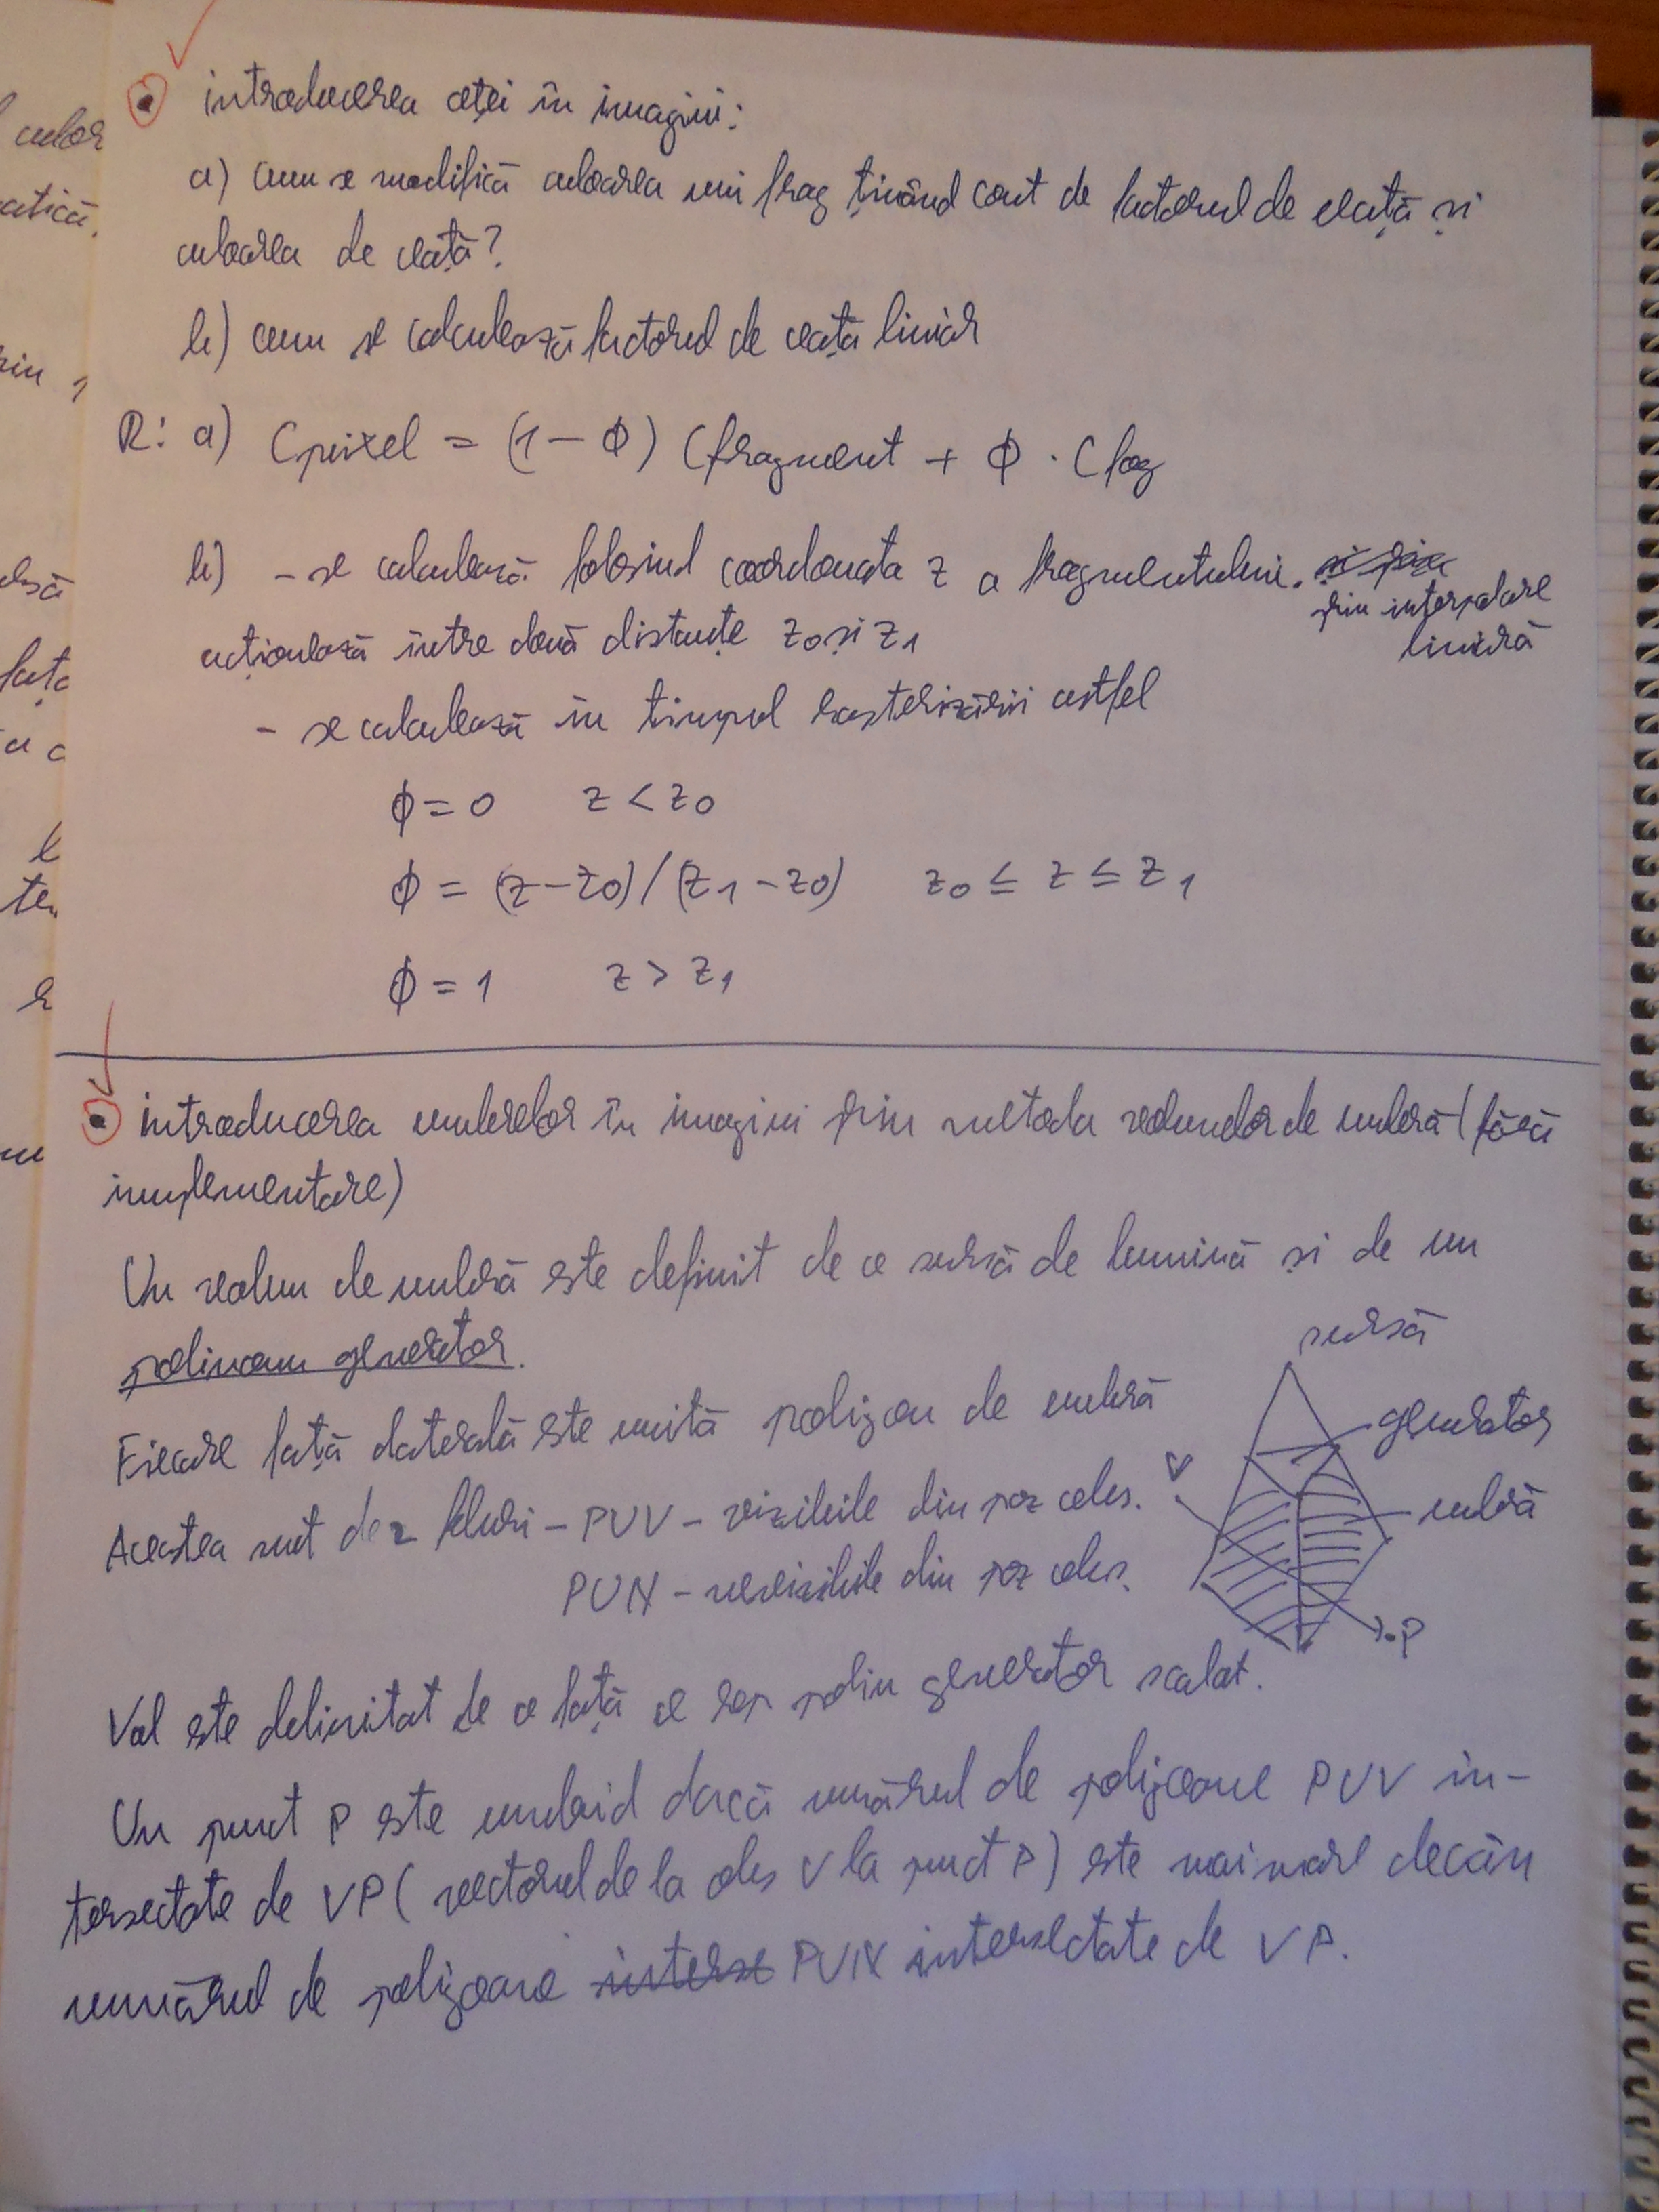 introducerea ceței în imagini:
a) cum se modifică culoarea unui frag ținând cont de factorul de ceață și
culoarea de ceață?
b) cum se calculează factorul de ceață liniar
R: a) Cpixel = (1 - ϕ) Cfragment + ϕ · Cfog
b) - se calculează folosind coordonata z a fragmentului. prin interpolare
liniară
acționează între două distanțe z0 și z1
- se calculează în timpul rasterizării astfel
ϕ = 0 z < z0
ϕ = (z - z0) / (z1 - z0) z0 ≤ z ≤ z1
ϕ = 1 z > z1
introducerea umbrelor în imagini prin metoda volumelor de umbră (fără
implementare)
Un volum de umbră este definit de o sursă de lumină și de un
generator.
sursă
Fiecare față laterală este numită poligon de umbră
generator
V
Acestea sunt de 2 feluri - PUV - vizibile din poz obs.
umbră
PUN - nevizibile din poz obs.
P
Vol este delimitat de o față ce rep generator scalat.
Un punct P este umbrit dacă numărul de poligoane PUV in-
tersectate de VP (vectorul de la obs V la punct P) este mai mare decân
numărul de poligoane PUN intersectate de VP.